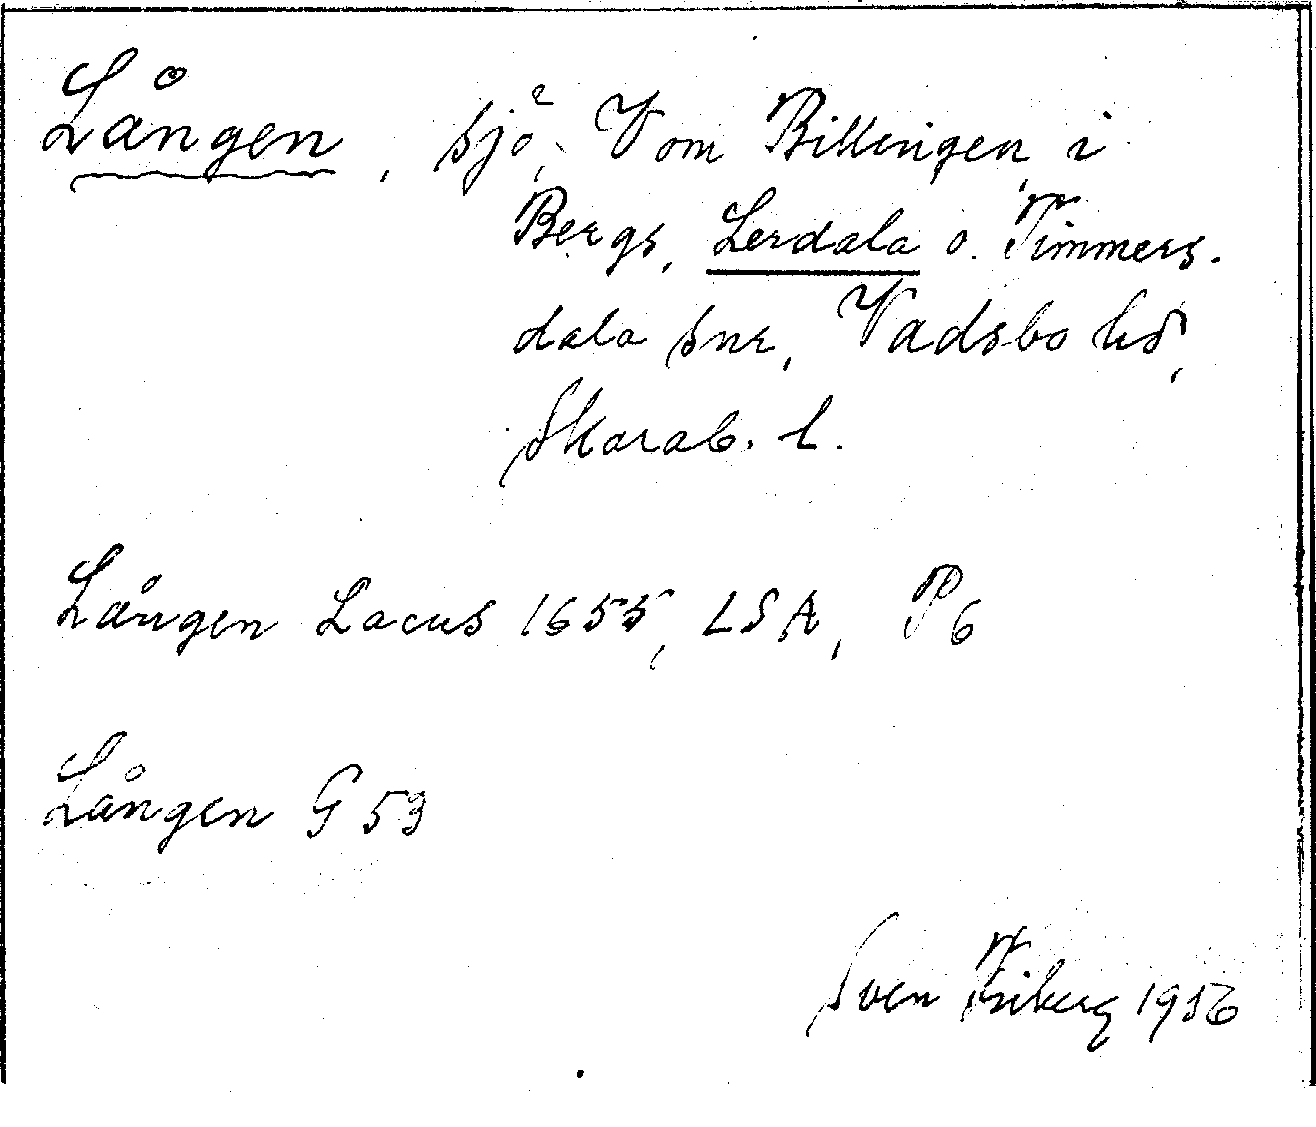 Lången, sjö, V om Billingen i
Bergs, Lerdala o. Timmers-
dala snr, Vadsbo hd,
Skarab. l.
Lången Lacus 1655, LSA, P6
Lången G 53
Sven Friberg 1956